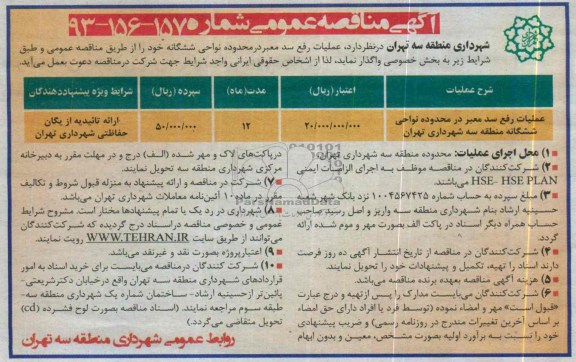 آگهی مناقصه عمومی شماره ۱۵۷-۱۵۶-۹۳
شهرداری منطقه سه تهران درنظردارد، عملیات رفع سد معبر درمحدوده نواحی ششگانه خود را از طریق مناقصه عمومی و طبق
شرایط زیر به بخش خصوصی واگذار نماید، لذا از اشخاص حقوقی ایرانی واجد شرایط جهت شرکت درمناقصه دعوت بعمل می‌آید.
شرح عملیات
اعتبار (ریال)
مدت (ماه)
سپرده (ریال)
شرایط ویژه پیشنهاددهندگان
عملیات رفع سد معبر در محدوده نواحی
ششگانه منطقه سه شهرداری تهران
۲۰/۰۰۰/۰۰۰/۰۰۰
۱۲
۵۰/۰۰۰/۰۰۰
ارائه تائیدیه از یگان
حفاظتی شهرداری تهران
۱) محل اجرای عملیات: محدوده منطقه سه شهرداری تهران
۲) شرکت‌کنندگان در مناقصه موظف به اجرای الزامات ایمنی
HSE- HSE PLAN می‌باشند.
۳) مبلغ سپرده به حساب شماره ۱۰۰۴۵۶۷۴۲۵ نزد بانک شهر شعبه
حسینیه ارشاد بنام شهرداری منطقه سه واریز و اصل رسید صاحب
حساب همراه دیگر اسناد در پاکت الف بصورت مهر و موم شده ارائه
گردد.
۴) شرکت‌کنندگان در مناقصه از تاریخ انتشار آگهی ده روز فرصت
دارند اسناد را تهیه، تکمیل و پیشنهادات خود را تحویل نمایند.
۵) هزینه آگهی مناقصه بعهده برنده مناقصه می‌باشد.
۶) شرکت‌کنندگان می‌بایست مدارک را پس از تهیه و درج عبارت
«قبول است» مهر و امضاء نموده (توسط فرد یا افراد دارای حق امضاء
بر اساس آخرین تغییرات مندرج در روزنامه رسمی) و ضریب پیشنهادی
خود را نسبت به برآورد اولیه بصورت مشخص، معین و بدون ابهام
درپاکت‌های لاک و مهر شده (الف) درج و در مهلت مقرر به دبیرخانه
مرکزی شهرداری منطقه سه تحویل نمایند.
۷) شرکت در مناقصه و ارائه پیشنهاد به منزله قبول شروط و تکالیف
مقرر در ماده ۱۰ آئین‌نامه معاملات شهرداری تهران می‌باشد.
۸) شهرداری در رد یک یا تمام پیشنهادها مختار است. مشروح شرایط
عمومی و خصوصی مناقصه دراسناد درج گردیده که شرکت‌کنندگان
می‌توانند از طریق سایت WWW.TEHRAN.IR رویت نمایند.
۹) اعتبارپروژه بصورت نقد و غیرنقد می‌باشد.
۱۰) شرکت کنندگان درمناقصه می‌بایست برای خرید اسناد به امور
قراردادهای شهرداری منطقه سه تهران واقع درخیابان دکترشریعتی-
پائین‌تر ازحسینیه ارشاد- ساختمان شماره یک شهرداری منطقه سه-
طبقه سوم مراجعه نمایند. (اسناد مناقصه بصورت لوح فشرده (cd)
تحویل متقاضی می‌گردد.)
روابط عمومی شهرداری منطقه سه تهران